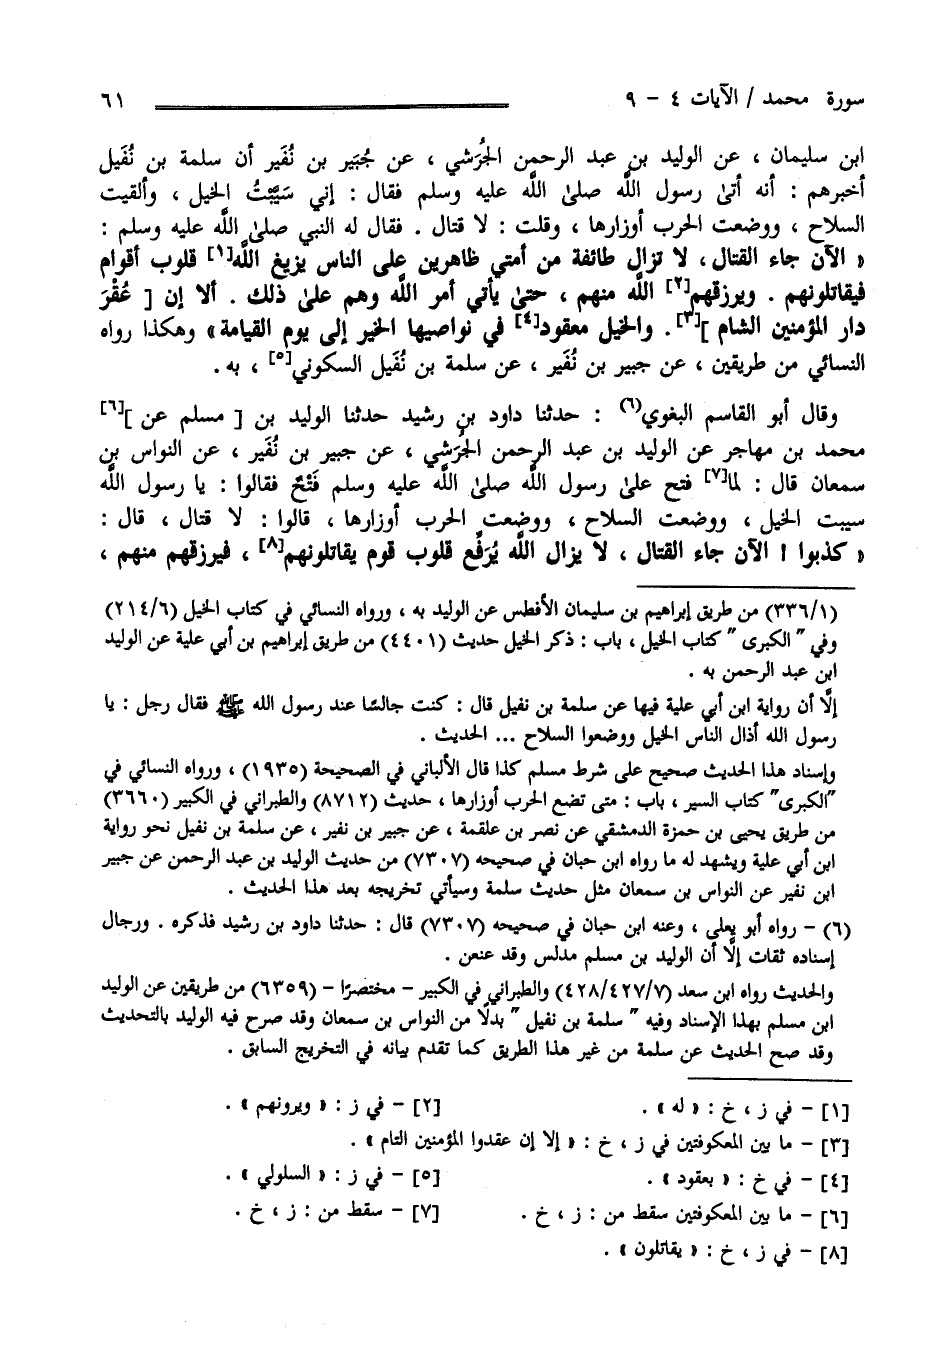 سورة محمد / الآيات ٤ - ٩ ٦١
ابن سليمان ، عن الوليد بن عبد الرحمن الجُرَشي ، عن جُبَير بن نُفَير أن سلمة بن نُفَيل
أخبرهم : أنه أتىٰ رسول اللَّه صلىٰ اللَّه عليه وسلم فقال : إني سَيَّبْتُ الخيل ، وألقيت
السلاح ، ووضعت الحرب أوزارها ، وقلت : لا قتال . فقال له النبي صلىٰ اللَّه عليه وسلم :
« الآن جاء القتال ، لا تزال طائفة من أمتي ظاهرين على الناس يزيغ اللَّه[١] قلوب أقوام
فيقاتلونهم . ويرزقهم[٢] اللَّه منهم ، حتىٰ يأتي أمر اللَّه وهم علىٰ ذلك . ألا إن [ عُقْرَ
دار المؤمنين الشام ][٣]. والخيل معقود[٤] في نواصيها الخير إلى يوم القيامة » وهكذا رواه
النسائي من طريقين ، عن جبير بن نُفَير ، عن سلمة بن نُفَيل السكوني[٥] ، به .
وقال أبو القاسم البغوي(٦) : حدثنا داود بن رشيد حدثنا الوليد بن [ مسلم عن ][٦]
محمد بن مهاجر عن الوليد بن عبد الرحمن الجُرَشي ، عن جبير بن نُفَير ، عن النواس بن
سمعان قال : لما[٧] فتح علىٰ رسول اللَّه صلىٰ اللَّه عليه وسلم فَتْحٌ فقالوا : يا رسول اللَّه
سيبت الخيل ، ووضعت السلاح ، ووضعت الحرب أوزارها ، قالوا : لا قتال ، قال :
« كذبوا ! الآن جاء القتال ، لا يزال اللَّه يُرَفِّع قلوب قوم يقاتلونهم[٨] ، فيرزقهم منهم ،
(٣٣٦/١) من طريق إبراهيم بن سليمان الأفطس عن الوليد به ، ورواه النسائي في كتاب الخيل (٢١٤/٦)
وفي " الكبرى " كتاب الخيل ، باب : ذكر الخيل حديث (٤٤٠١) من طريق إبراهيم بن أبي علية عن الوليد
ابن عبد الرحمن به .
إلَّا أن رواية ابن أبي علية فيها عن سلمة بن نفيل قال : كنت جالسًا عند رسول الله ﷺ فقال رجل : يا
رسول الله أذال الناس الخيل ووضعوا السلاح ... الحديث .
وإسناد هذا الحديث صحيح على شرط مسلم كذا قال الألباني في الصحيحة (١٩٣٥) ، ورواه النسائي في
"الكبرى" كتاب السير ، باب : متى تضع الحرب أوزارها ، حديث (٨٧١٢) والطبراني في الكبير (٣٦٦٠)
من طريق يحيى بن حمزة الدمشقي عن نصر بن علقمة ، عن جبير بن نفير ، عن سلمة بن نفيل نحو رواية
ابن أبي علية ويشهد له ما رواه ابن حبان في صحيحه (٧٣٠٧) من حديث الوليد بن عبد الرحمن عن جبير
ابن نفير عن النواس بن سمعان مثل حديث سلمة وسيأتي تخريجه بعد هذا الحديث .
(٦) - رواه أبو يعلى ، وعنه ابن حبان في صحيحه (٧٣٠٧) قال : حدثنا داود بن رشيد فذكره . ورجال
إسناده ثقات إلَّا أن الوليد بن مسلم مدلس وقد عنعن .
والحديث رواه ابن سعد (٤٢٨/٤٢٧/٧) والطبراني في الكبير - مختصرًا - (٦٣٥٩) من طريقين عن الوليد
ابن مسلم بهذا الإسناد وفيه " سلمة بن نفيل " بدلًا من النواس بن سمعان وقد صرح فيه الوليد بالتحديث
وقد صح الحديث عن سلمة من غير هذا الطريق كما تقدم بيانه في التخريج السابق .
[١] - في ز ، خ : « له » . [٢] - في ز : « ويرونهم » .
[٣] - ما بين المعكوفتين في ز ، خ : « إلا إن عقدوا المؤمنين التام » .
[٤] - في خ : « بعقود » . [٥] - في ز : « السلولي » .
[٦] - ما بين المعكوفتين سقط من : ز ، خ . [٧] - سقط من : ز ، خ .
[٨] - في ز ، خ : « يقاتلون » .